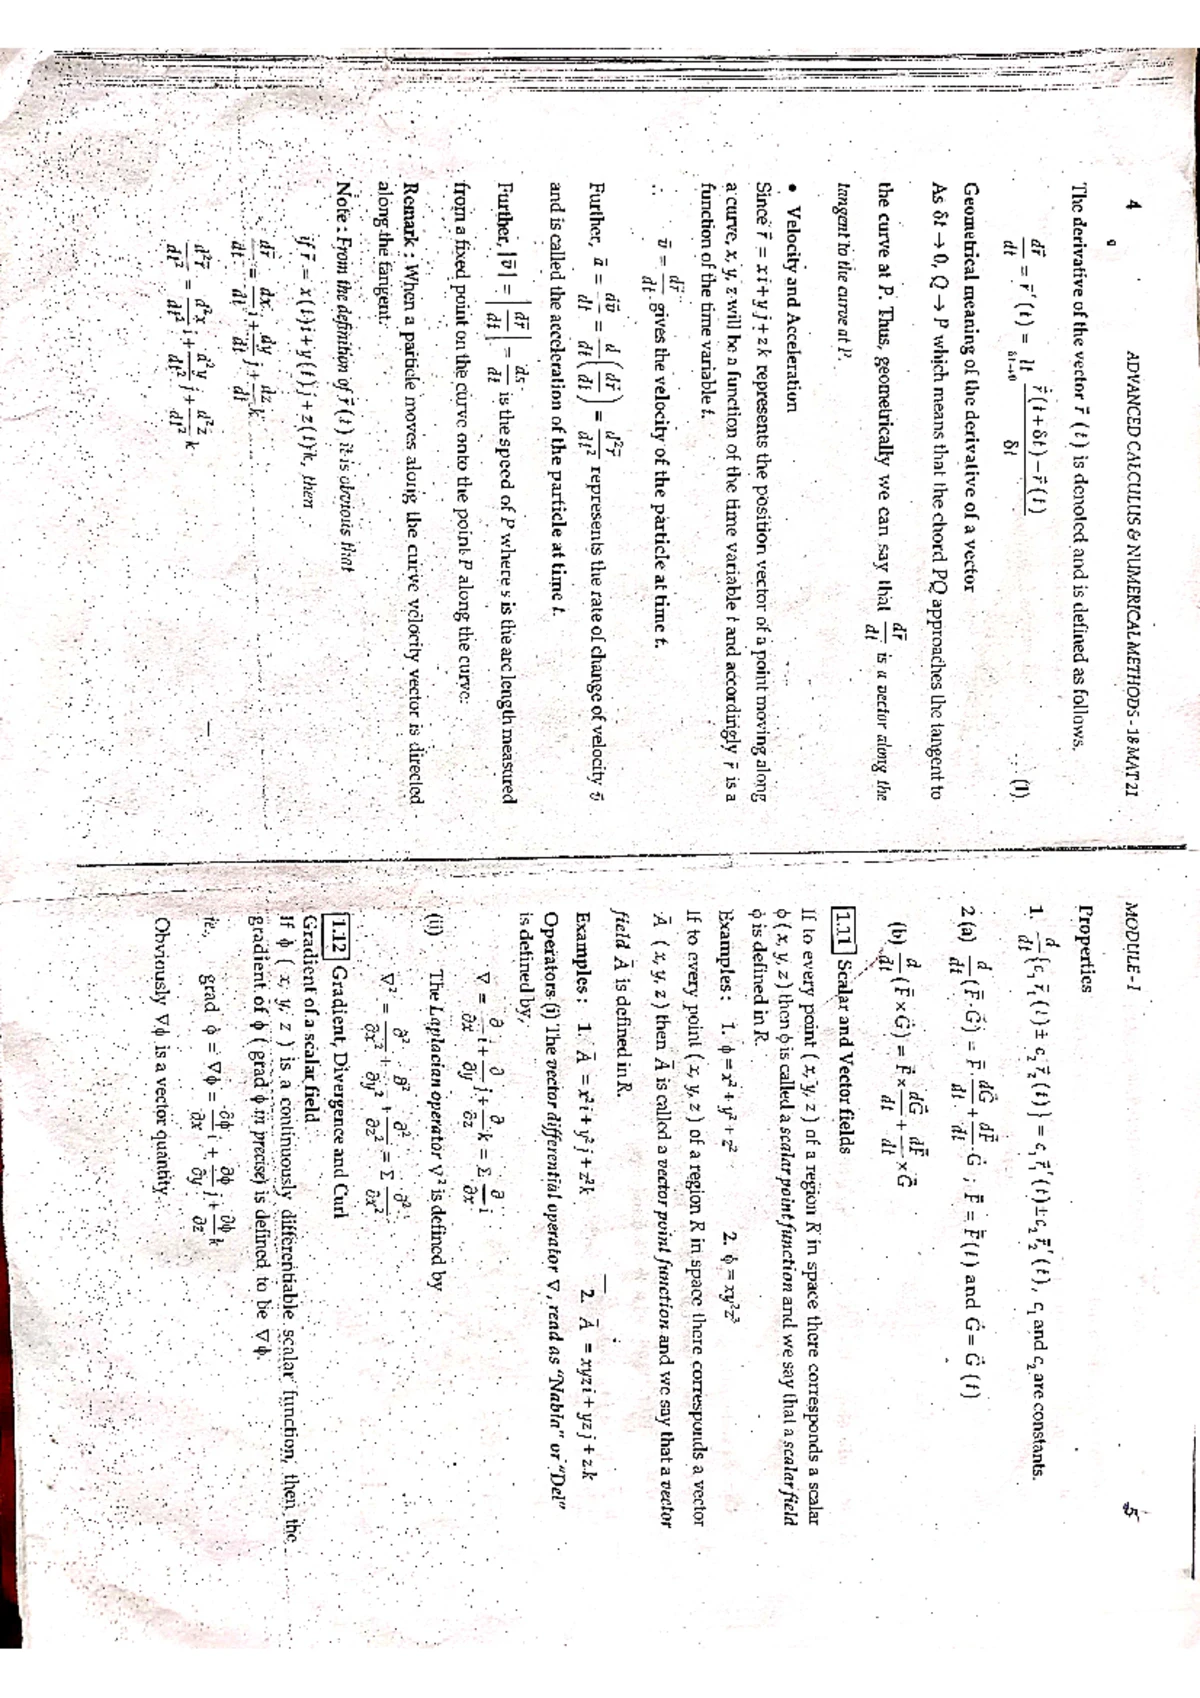 4 ADVANCED CALCULUS & NUMERICAL METHODS - 18 MAT 21
The derivative of the vector r⃗ (t) is denoted and is defined as follows.
dr⃗/dt = r⃗′(t) = lt δt→0 [r⃗(t+δt) − r⃗(t)]/δt ... (1)
Geometrical meaning of the derivative of a vector
As δt → 0, Q → P which means that the chord PQ approaches the tangent to
the curve at P. Thus, geometrically we can say that dr⃗/dt is a vector along the
tangent to the curve at P.
• Velocity and Acceleration
Since r⃗ = x i + y j + z k represents the position vector of a point moving along
a curve, x, y, z will be a function of the time variable t and accordingly r⃗ is a
function of the time variable t.
∴ v⃗ = dr⃗/dt gives the velocity of the particle at time t.
Further, a⃗ = dv⃗/dt = d/dt (dr⃗/dt) = d²r⃗/dt² represents the rate of change of velocity v⃗
and is called the acceleration of the particle at time t.
Further, |v⃗| = |dr⃗/dt| = ds/dt is the speed of P where s is the arc length measured
from a fixed point on the curve onto the point P along the curve.
Remark : When a particle moves along the curve velocity vector is directed
along the tangent.
Note : From the definition of r⃗′(t) it is obvious that
if r⃗ = x(t)i + y(t)j + z(t)k, then
dr⃗/dt = dx/dt i + dy/dt j + dz/dt k
d²r⃗/dt² = d²x/dt² i + d²y/dt² j + d²z/dt² k
MODULE - 1 5
Properties
1. d/dt {c₁ r⃗₁(t) ± c₂ r⃗₂(t)} = c₁ r⃗₁′(t) ± c₂ r⃗₂′(t), c₁ and c₂ are constants.
2 (a) d/dt (F⃗·G⃗) = F⃗·dG⃗/dt + dF⃗/dt·G⃗ ; F⃗ = F⃗(t) and G⃗ = G⃗(t)
(b) d/dt (F⃗×G⃗) = F⃗×dG⃗/dt + dF⃗/dt×G⃗
1.11 Scalar and Vector fields
If to every point (x, y, z) of a region R in space there corresponds a scalar
ϕ(x, y, z) then ϕ is called a scalar point function and we say that a scalar field
ϕ is defined in R.
Examples : 1. ϕ = x² + y² + z² 2. ϕ = xy²z³
If to every point (x, y, z) of a region R in space there corresponds a vector
A⃗ (x, y, z) then A⃗ is called a vector point function and we say that a vector
field A⃗ is defined in R.
Examples : 1. A⃗ = x²i + y²j + z²k 2. A⃗ = xyz i + yz j + z k
Operators (i) The vector differential operator ∇, read as "Nabla" or "Del"
is defined by,
∇ = ∂/∂x i + ∂/∂y j + ∂/∂z k = Σ ∂/∂x i
(ii) The Laplacian operator ∇² is defined by
∇² = ∂²/∂x² + ∂²/∂y² + ∂²/∂z² = Σ ∂²/∂x²
1.12 Gradient, Divergence and Curl
Gradient of a scalar field
If ϕ (x, y, z) is a continuously differentiable scalar function, then the
gradient of ϕ (grad ϕ in precise) is defined to be ∇ϕ.
ie., grad ϕ = ∇ϕ = ∂ϕ/∂x i + ∂ϕ/∂y j + ∂ϕ/∂z k
Obviously ∇ϕ is a vector quantity.